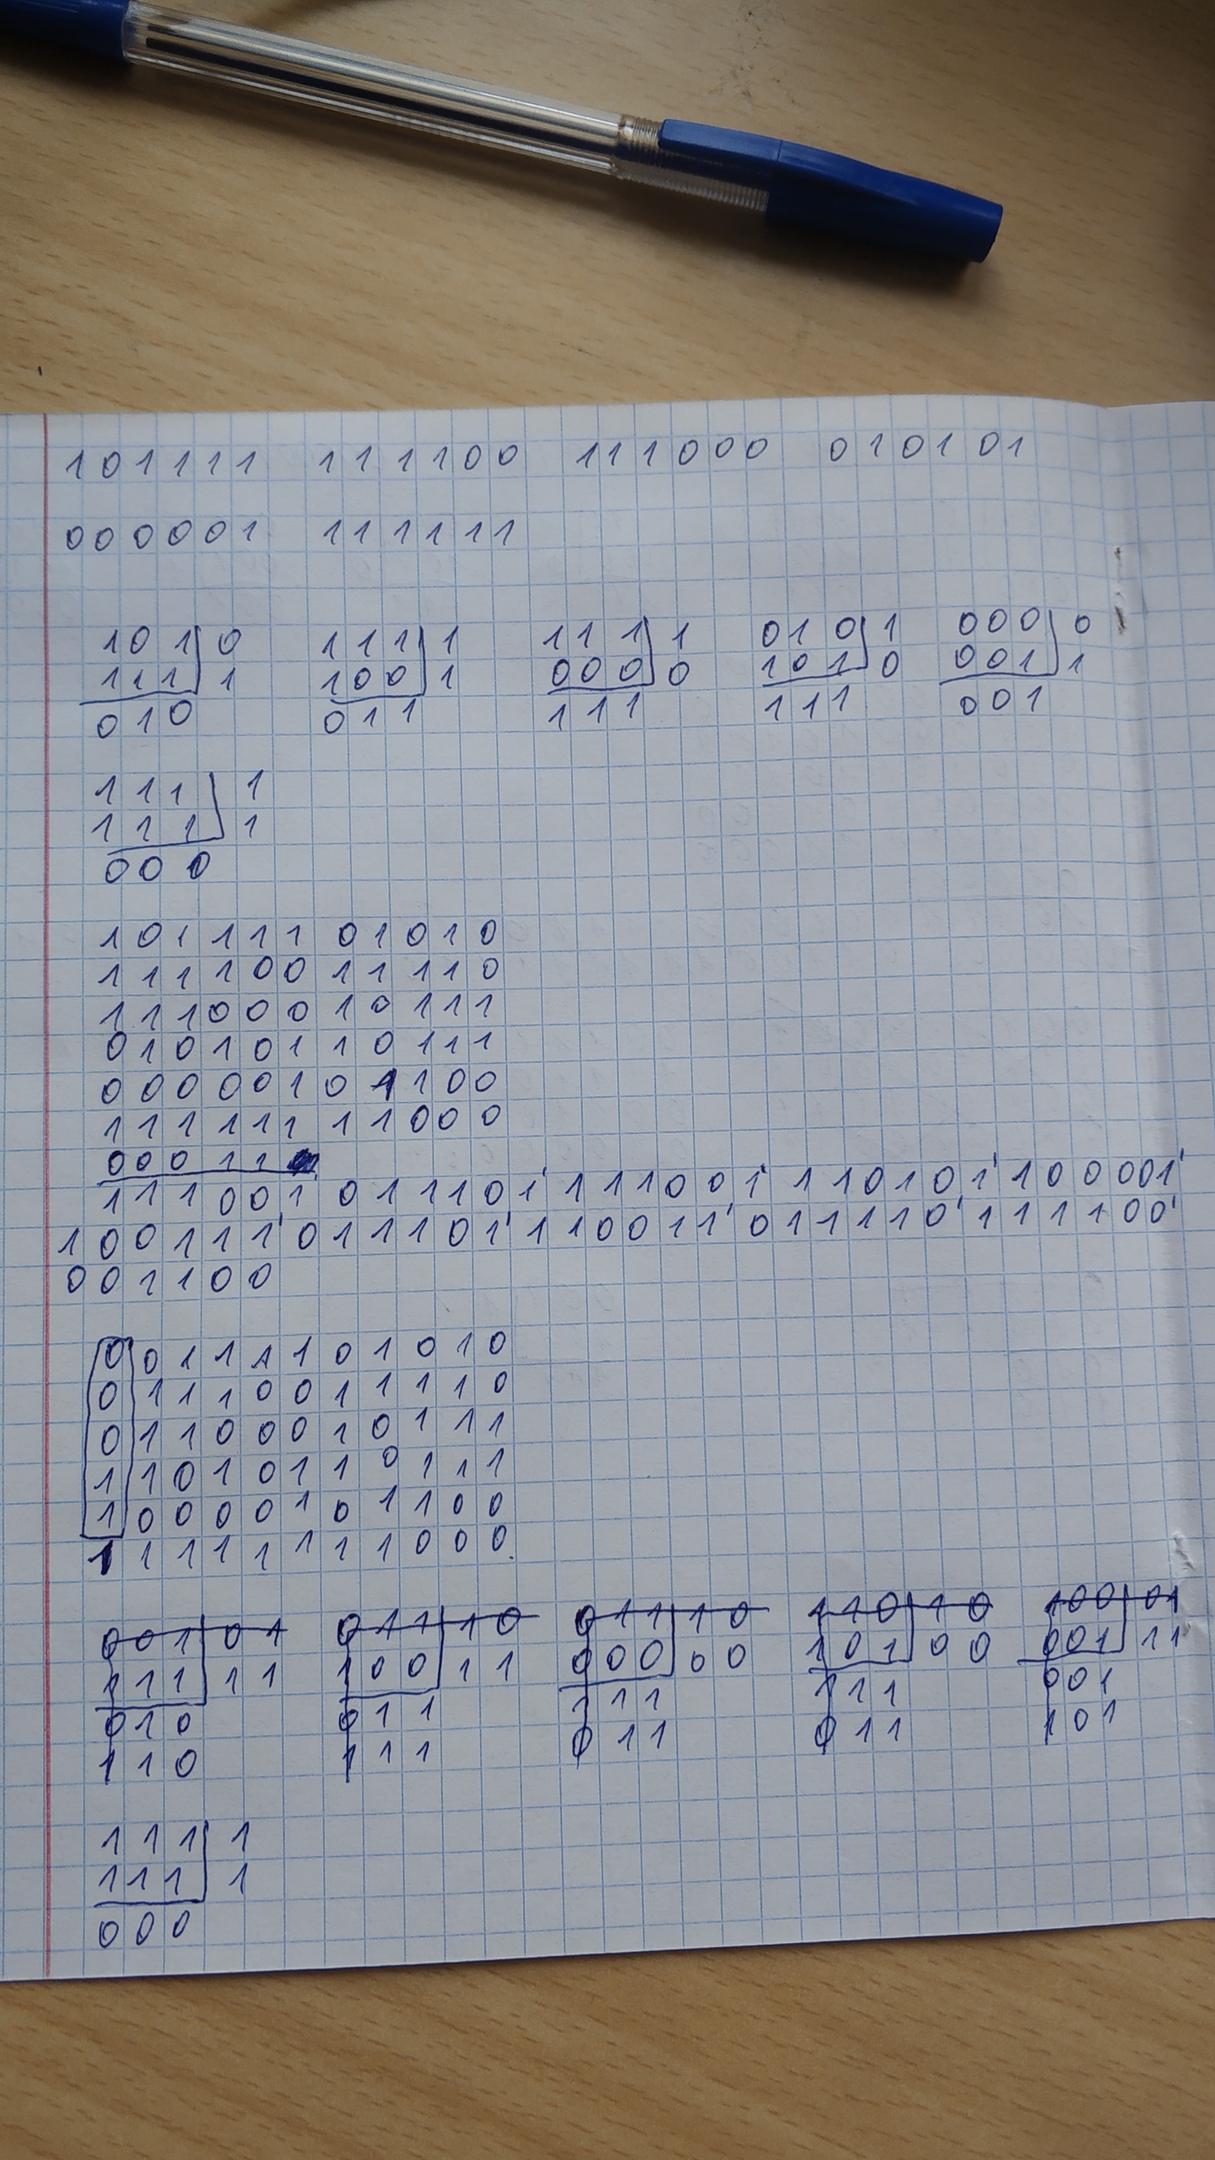 101111 111100 111000 010101
000001 111111
101 0 111 1 111 1 010 1 000 0
111 1 100 1 000 0 101 0 001 1
010 011 111 111 001
111 1
111 1
000
101111 01010
111100 11110
111000 10111
010101 10111
000001 01100
111111 11000
00011
111001 011101' 111001' 110101' 100001'
100111' 011101' 110011' 011110' 111100'
001100
00111101010
01110011110
01100010111
11010110111
10000101100
11111111000
001 01 011 10 011 10 110 10 100 01
111 11 100 11 000 00 101 00 001 11
010 011 111 111 001
110 111 011 011 101
111 1
111 1
000